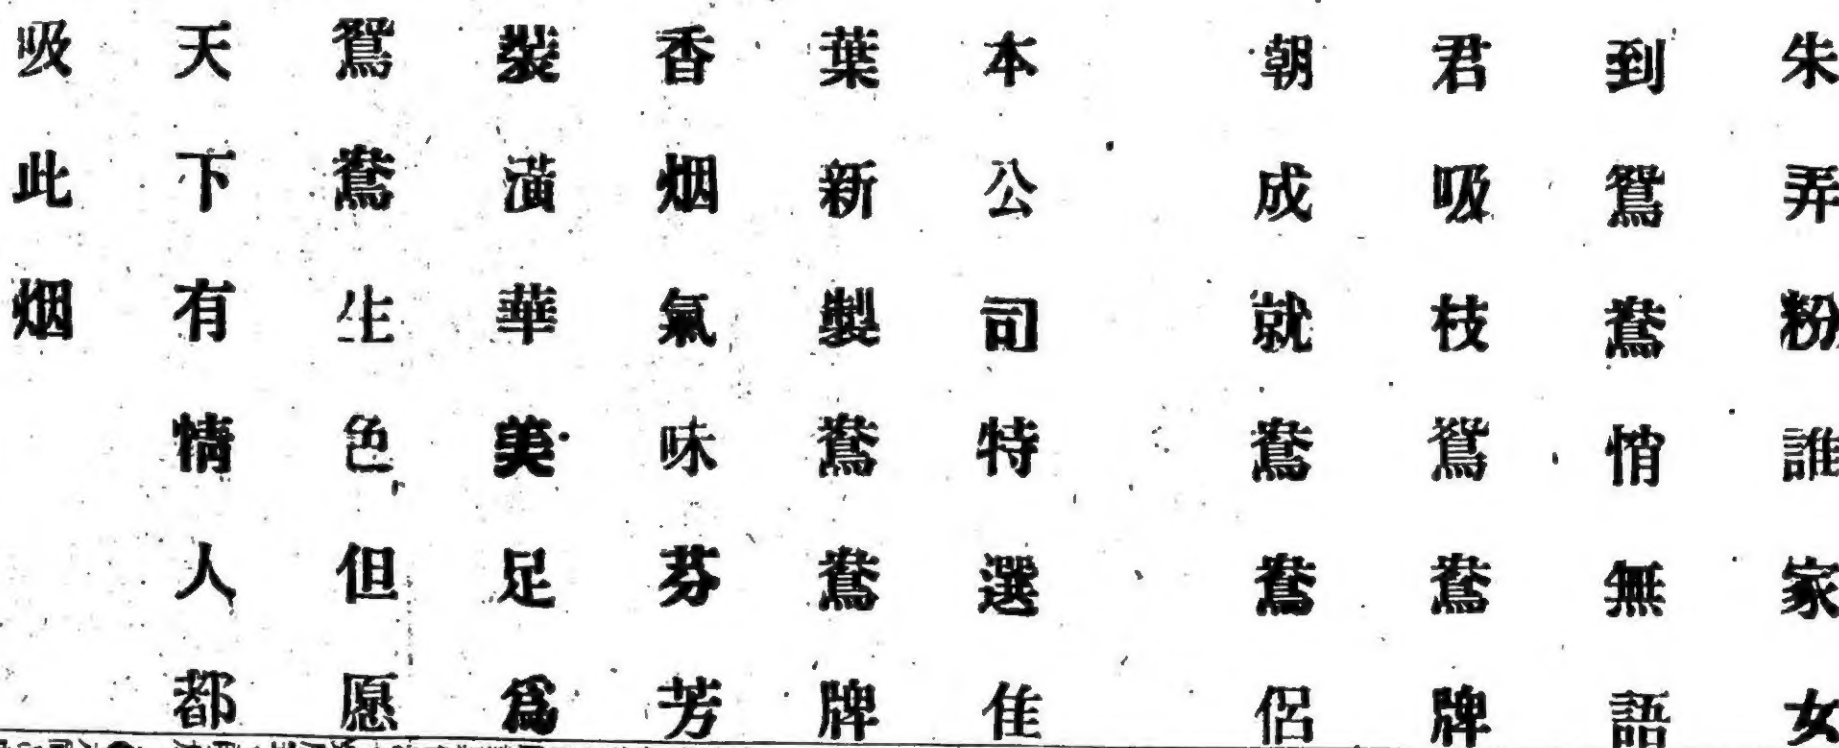 朱弄粉誰家女
到鴛鴦悄無語
君吸枝鴛鴦牌
朝成就鴛鴦侶
本公司特選佳
葉新製鴛鴦牌
香烟氣味芬芳
裝潢華美足爲
鴛鴦生色但愿
天下有情人都
吸此烟